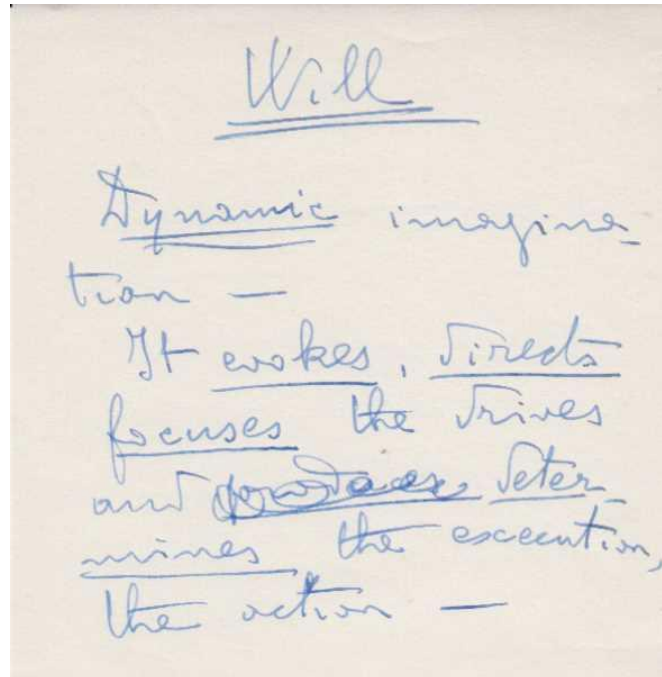 Will
Dynamic imagina-
tion —
It evokes, directs
focuses the drives
and produces deter-
mines the execution,
the action —